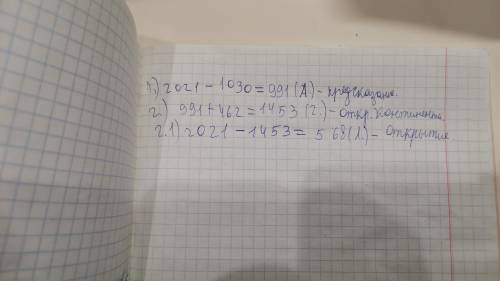 1.) 2021 - 1030 = 991 (л.) - предсказание.
2.) 991 + 462 = 1453 (г.) - откр. континента.
2.1) 2021 - 1453 = 568 (л.) - открытия